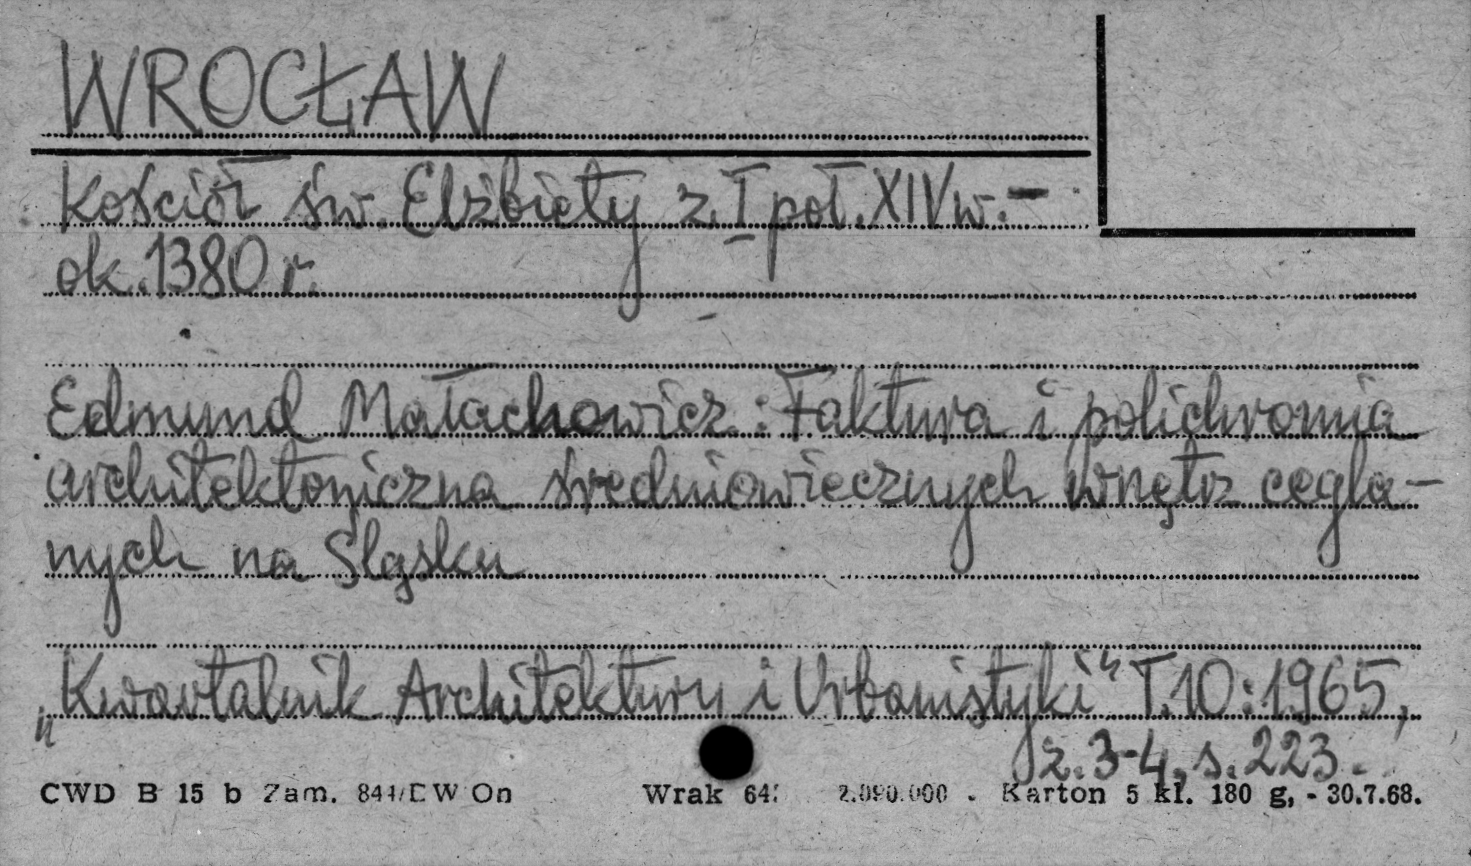 WROCŁAW
Kościół św. Elżbiety z I poł. XIV w. -
ok. 1380 r.
Edmund Małachowicz: Faktura i polichromia
architektoniczna średniowiecznych wnętrz cegla-
nych na Śląsku
„Kwartalnik Architektury i Urbanistyki" T.10:1965,
z. 3-4, s. 223.
CWD B 15 b Zam. 844/DW On Wrak 2.090.000 - Karton 5 kl. 180 g, - 30.7.68.